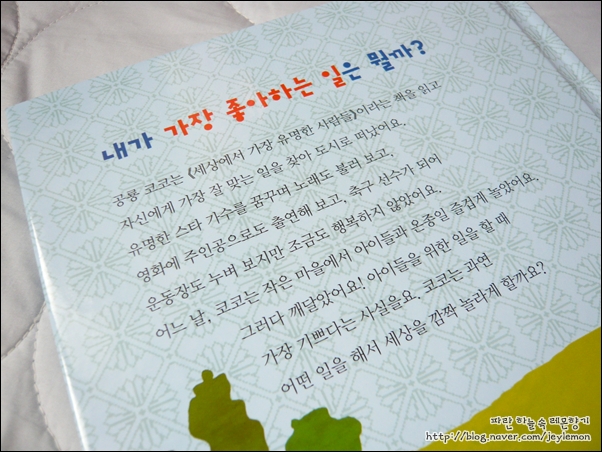 내가 가장 좋아하는 일은 뭘까?
공룡 코코는 《세상에서 가장 유명한 사람들》이라는 책을 읽고
자신에게 가장 잘 맞는 일을 찾아 도시로 떠났어요.
유명한 스타 가수를 꿈꾸며 노래도 불러 보고,
영화에 주인공으로도 출연해 보고, 축구 선수가 되어
운동장도 누벼 보지만 조금도 행복하지 않았어요.
어느 날, 코코는 작은 마을에서 아이들과 온종일 즐겁게 놀았어요.
그러다 깨달았어요! 아이들을 위한 일을 할 때
가장 기쁘다는 사실을요. 코코는 과연
어떤 일을 해서 세상을 깜짝 놀라게 할까요?
파란 하늘 숙 레몬향기
http://blog.naver.com/jeylemon